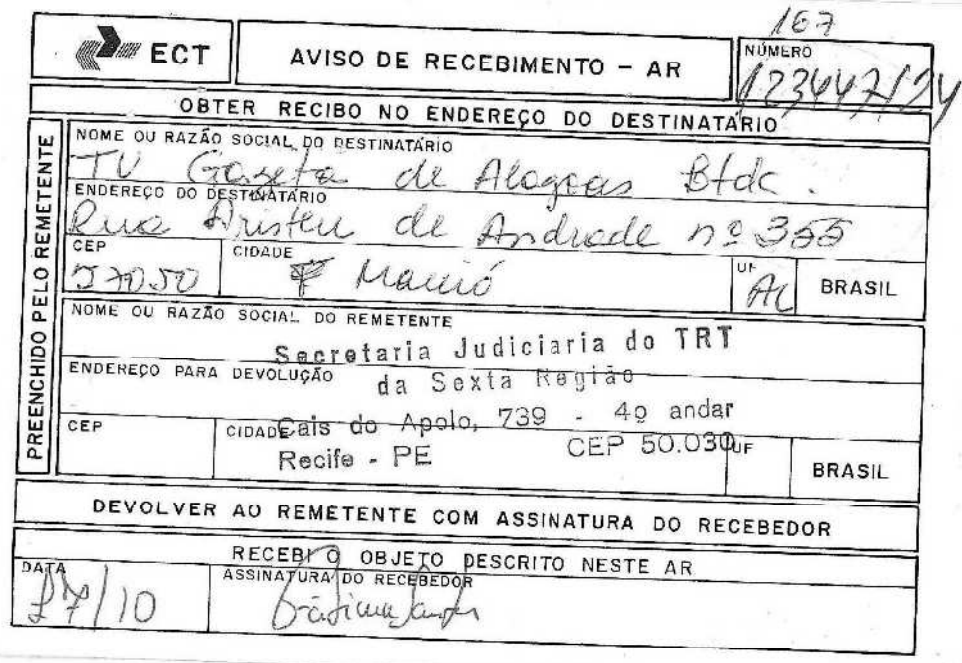 167
ECT
AVISO DE RECEBIMENTO - AR
NÚMERO
123447/24
OBTER RECIBO NO ENDEREÇO DO DESTINATÁRIO
PREENCHIDO PELO REMETENTE
NOME OU RAZÃO SOCIAL DO DESTINATÁRIO
TV Gazeta de Alagoas Ltda.
ENDEREÇO DO DESTINATÁRIO
Rua Aristeu de Andrade nº 355
CEP CIDADE UF
57050 Maceió AL BRASIL
NOME OU RAZÃO SOCIAL DO REMETENTE
Secretaria Judiciaria do TRT
ENDEREÇO PARA DEVOLUÇÃO
da Sexta Região
Cais do Apolo, 739 - 4º andar
CEP CIDADE UF
Recife - PE CEP 50.030
BRASIL
DEVOLVER AO REMETENTE COM ASSINATURA DO RECEBEDOR
RECEBI O OBJETO DESCRITO NESTE AR
DATA ASSINATURA DO RECEBEDOR
27/10